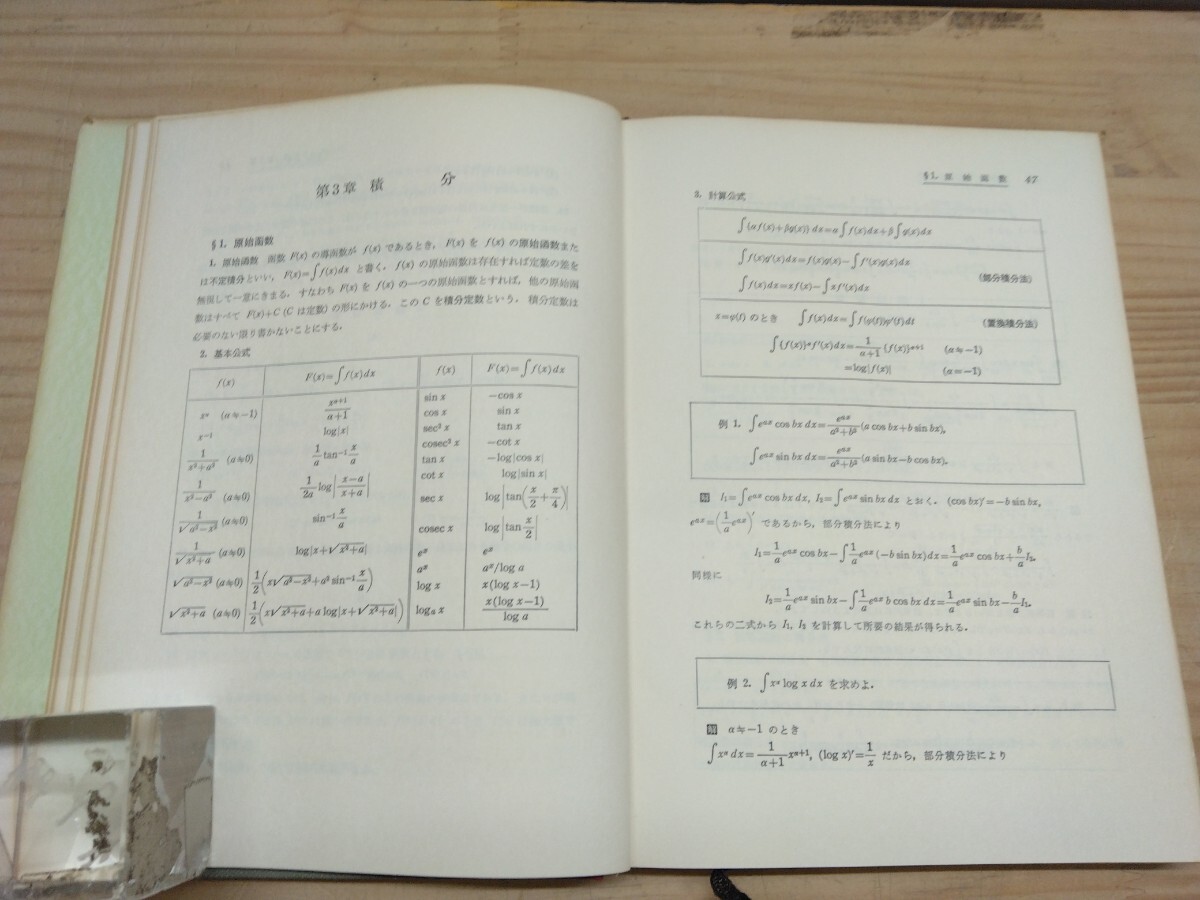 第3章 積 分
§1. 原始函数
1. 原始函数 函数 F(x) の導函数が f(x) であるとき, F(x) を f(x) の原始函数また
は不定積分といい, F(x)=∫f(x)dx と書く. f(x) の原始函数は存在すれば定数の差を
無視して一意にきまる. すなわち F(x) を f(x) の一つの原始函数とすれば, 他の原始函
数はすべて F(x)+C (C は定数) の形にかける. この C を積分定数という. 積分定数は
必要のない限り書かないことにする.
2. 基本公式
f(x) F(x)=∫f(x)dx f(x) F(x)=∫f(x)dx
x^α (α≒−1) x^{α+1}/(α+1) sin x −cos x
x^{−1} log|x| cos x sin x
1/(x²+a²) (a≒0) (1/a)tan^{−1}(x/a) sec² x tan x
1/(x²−a²) (a≒0) (1/2a)log|(x−a)/(x+a)| cosec² x −cot x
1/√(a²−x²) (a≒0) sin^{−1}(x/a) tan x −log|cos x|
1/√(x²+a) (a≒0) log|x+√(x²+a)| cot x log|sin x|
√(a²−x²) (a≒0) (1/2)(x√(a²−x²)+a² sin^{−1}(x/a)) sec x log|tan(x/2+π/4)|
√(x²+a) (a≒0) (1/2)(x√(x²+a)+a log|x+√(x²+a)|) cosec x log|tan(x/2)|
e^x e^x
a^x a^x/log a
log x x(log x−1)
log_a x x(log x−1)/log a
§1. 原始函数 47
3. 計算公式
∫{αf(x)+βg(x)}dx=α∫f(x)dx+β∫g(x)dx
∫f(x)g′(x)dx=f(x)g(x)−∫f′(x)g(x)dx
(部分積分法)
∫f(x)dx=xf(x)−∫xf′(x)dx
x=φ(t) のとき ∫f(x)dx=∫f(φ(t))φ′(t)dt (置換積分法)
∫{f(x)}^α f′(x)dx=1/(α+1){f(x)}^{α+1} (α≒−1)
=log|f(x)| (α=−1)
例 1. ∫e^{ax} cos bx dx=e^{ax}/(a²+b²)(a cos bx+b sin bx),
∫e^{ax} sin bx dx=e^{ax}/(a²+b²)(a sin bx−b cos bx).
解 I₁=∫e^{ax} cos bx dx, I₂=∫e^{ax} sin bx dx とおく. (cos bx)′=−b sin bx,
e^{ax}=((1/a)e^{ax})′ であるから, 部分積分法により
I₁=(1/a)e^{ax} cos bx−∫(1/a)e^{ax}(−b sin bx)dx=(1/a)e^{ax} cos bx+(b/a)I₂.
同様に
I₂=(1/a)e^{ax} sin bx−∫(1/a)e^{ax} b cos bx dx=(1/a)e^{ax} sin bx−(b/a)I₁.
これらの二式から I₁, I₂ を計算して所要の結果が得られる.
例 2. ∫x^α log x dx を求めよ.
解 α≒−1 のとき
∫x^α dx=1/(α+1) x^{α+1}, (log x)′=1/x だから, 部分積分法により